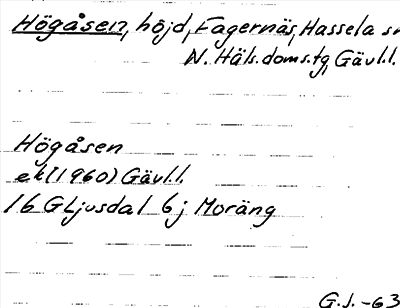 Högåsen, höjd, Fagernäs, Hassela sn
N. Häls. doms.tg, Gävl.l.
Högåsen
ek (1960) Gävl.l.
16 G Ljusdal 6j Moräng
G.J. -63